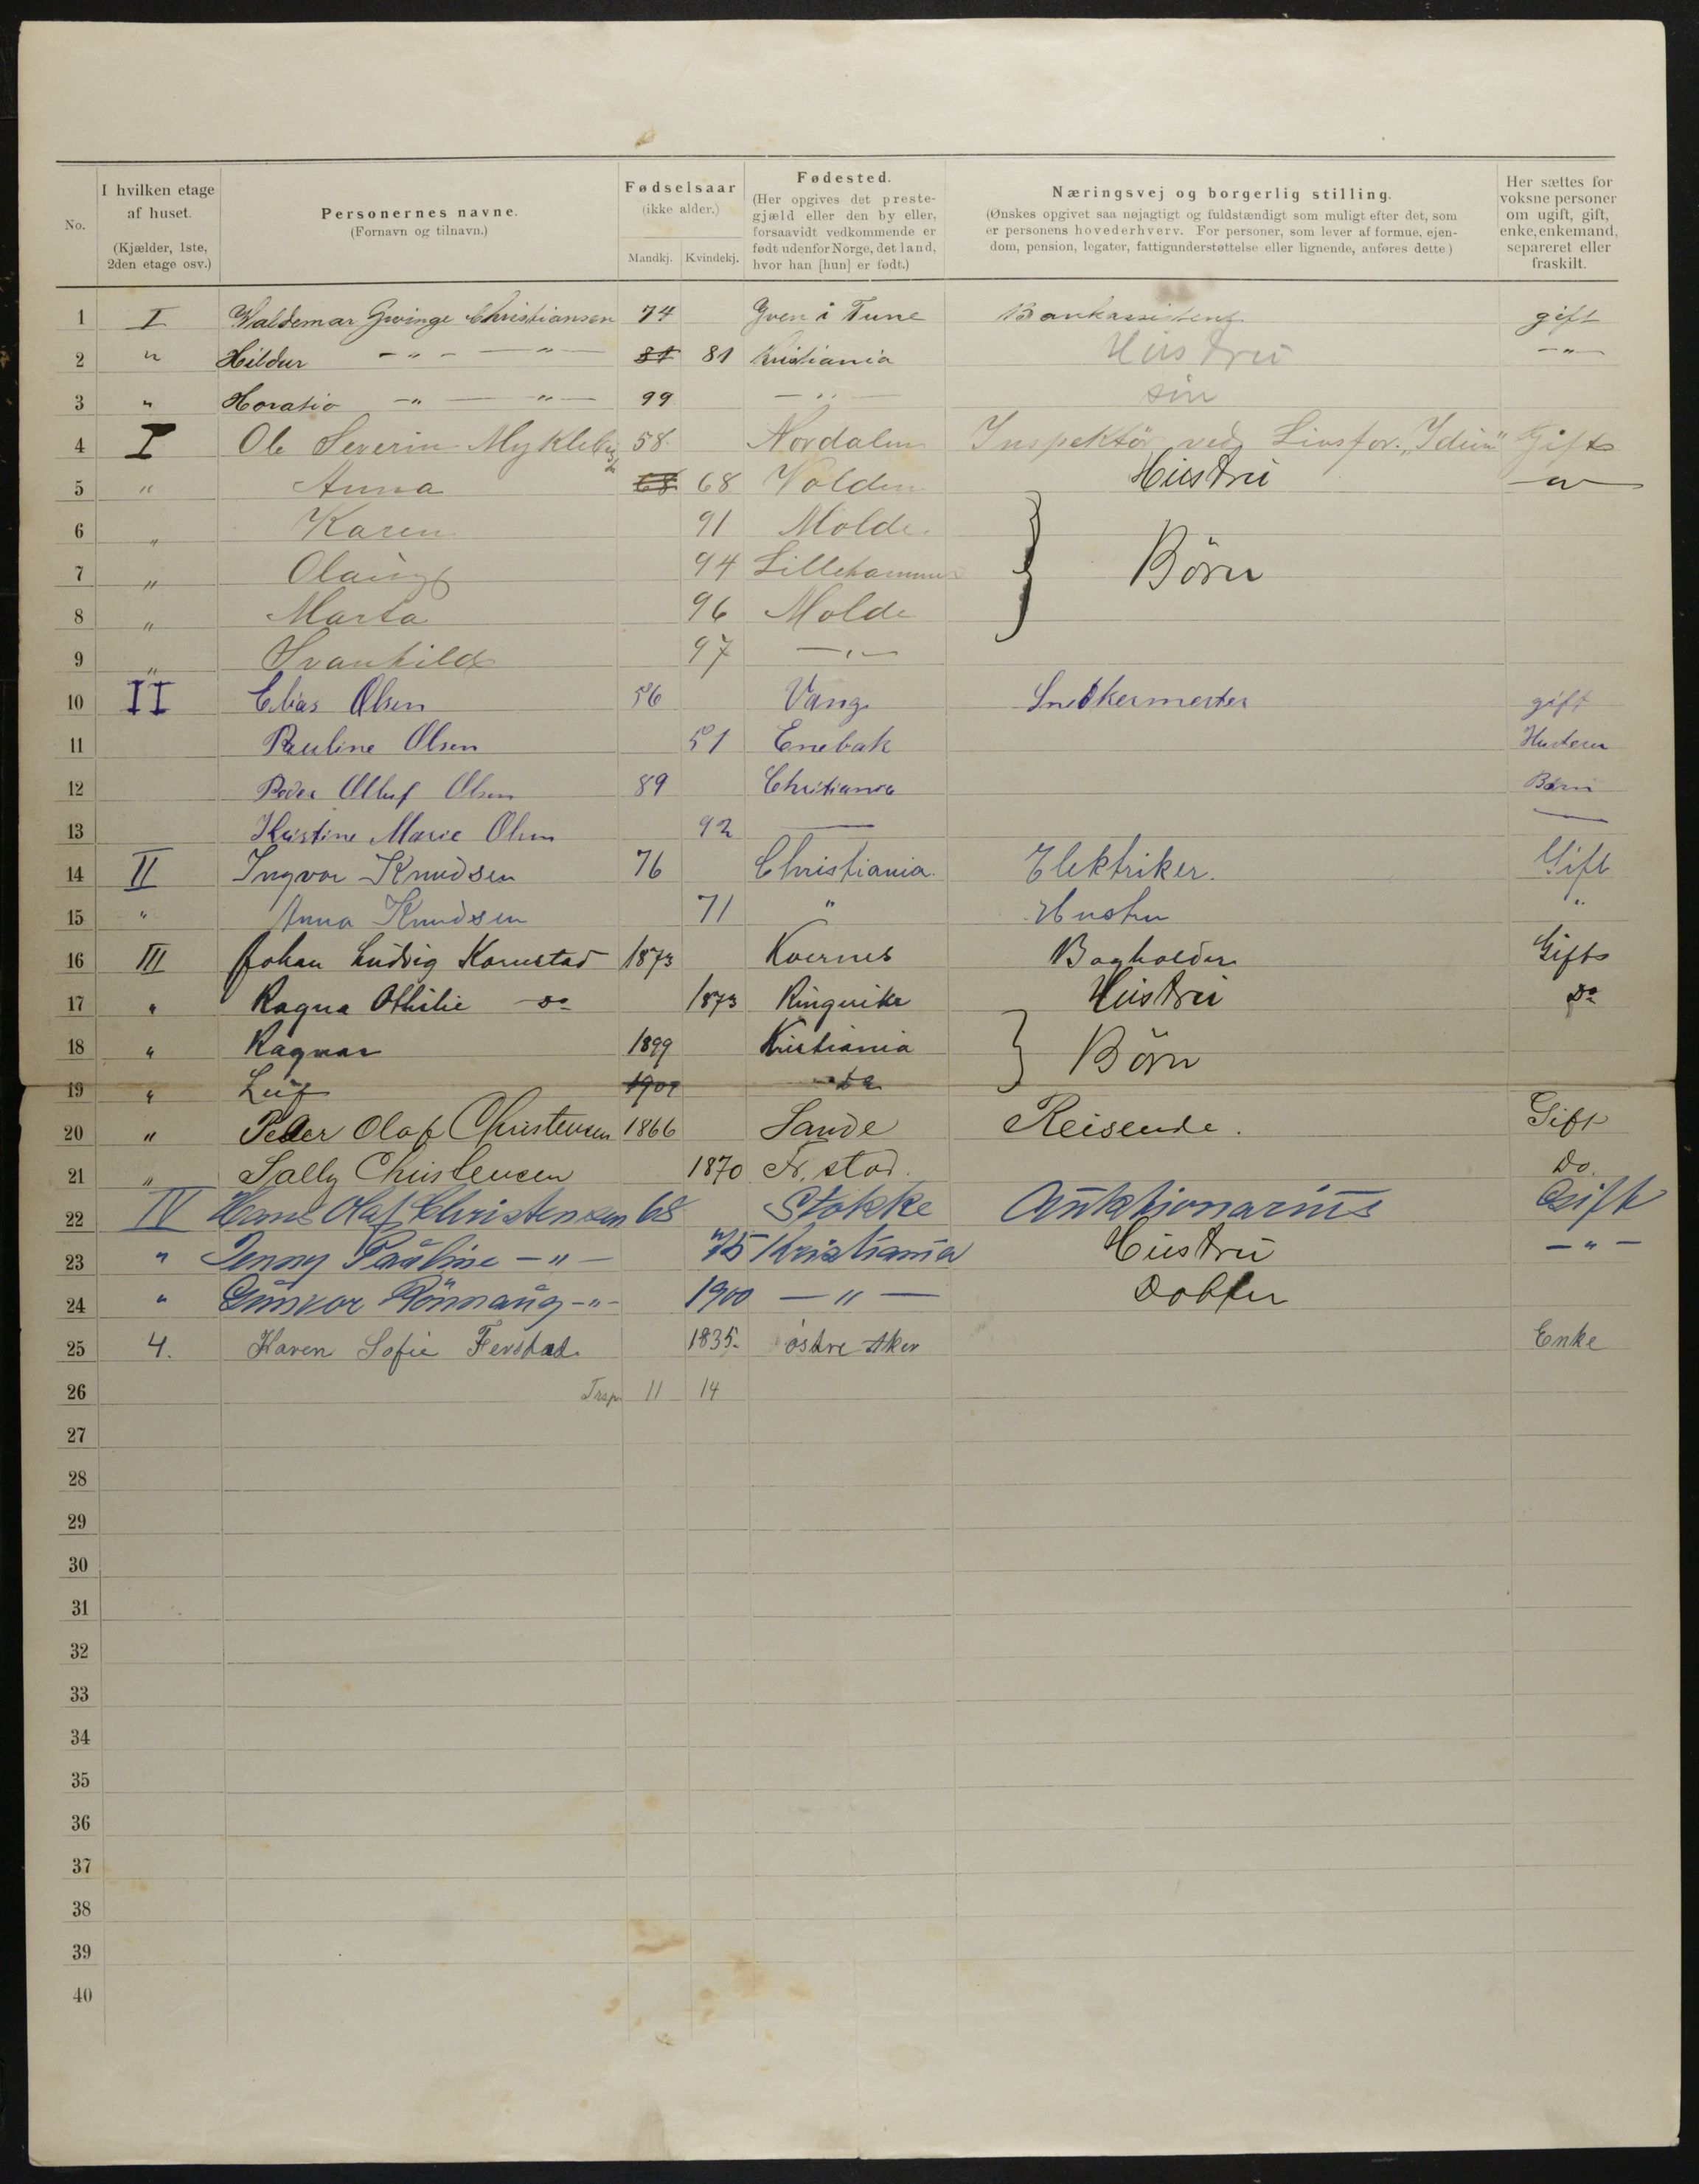 No.
I hvilken etage af huset. (Kjælder, 1ste, 2den etage osv.)
Personernes navne. (Fornavn og tilnavn.)
Fødselsaar (ikke alder.) Mandkj. Kvindekj.
Fødested. (Her opgives det prestegjæld eller den by eller, forsaavidt vedkommende er født udenfor Norge, det land, hvor han [hun] er født.)
Næringsvej og borgerlig stilling. (Ønskes opgivet saa nøjagtigt og fuldstændigt som muligt efter det, som er personens hovederhverv. For personer, som lever af formue, ejendom, pension, legater, fattigunderstøttelse eller lignende, anføres dette.)
Her sættes for voksne personer om ugift, gift, enke, enkemand, separeret eller fraskilt.
1 I Waldemar Christiansen 74 i Tune Bankassistent gift
2 " Hildur -"- -"- 81 81 Kristiania Hustru -"-
3 " Horatio -"- -"- 99 -"- sön
4 I Ole Severin Myklebust 58 Nordalen Inspektör ved Livsfor. "Idun" Gift
5 " Anna 68 68 Volden Hustru -"-
6 " Karen 91 Molde. } Börn
7 " Olaug 94 Lillehammer
8 " Marta 96 Molde
9 " Svanhild 97 -"-
10 II Elias Olsen 56 Vang Snedkermester gift
11 Pauline Olsen 51 Enebak Hustru
12 Peder Olluf Olsen 89 Christiania Børn
13 Kristine Marie Olsen 92 — —
14 II Ingvor Knudsen 76 Christiania. Elektriker. Gift
15 " Anna Knudsen 71 " Hustru "
16 III Johan Ludvig Kornstad 1873 Kvernes Bogholder Gift
17 " Ragna Othilie do 1873 Ringerike Hustru do
18 " Ragnar 1899 Kristiania } Börn
19 " Leif 1900 do
20 " Peder Olaf Christensen 1866 Sande Reisende. Gift
21 " Sally Christensen 1870 Fr. stad. Do.
22 IV Hans Olaf Christensen 68 Stokke Auktionarius Gift
23 " Jenny Pauline -"- 75 Kristiania Hustru -"-
24 " Gunvor Rönnaug -"- 1900 -"- Dotter
25 4. Karen Sofie Ferstad 1835. östre Aker Enke
26 11 14
27
28
29
30
31
32
33
34
35
36
37
38
39
40